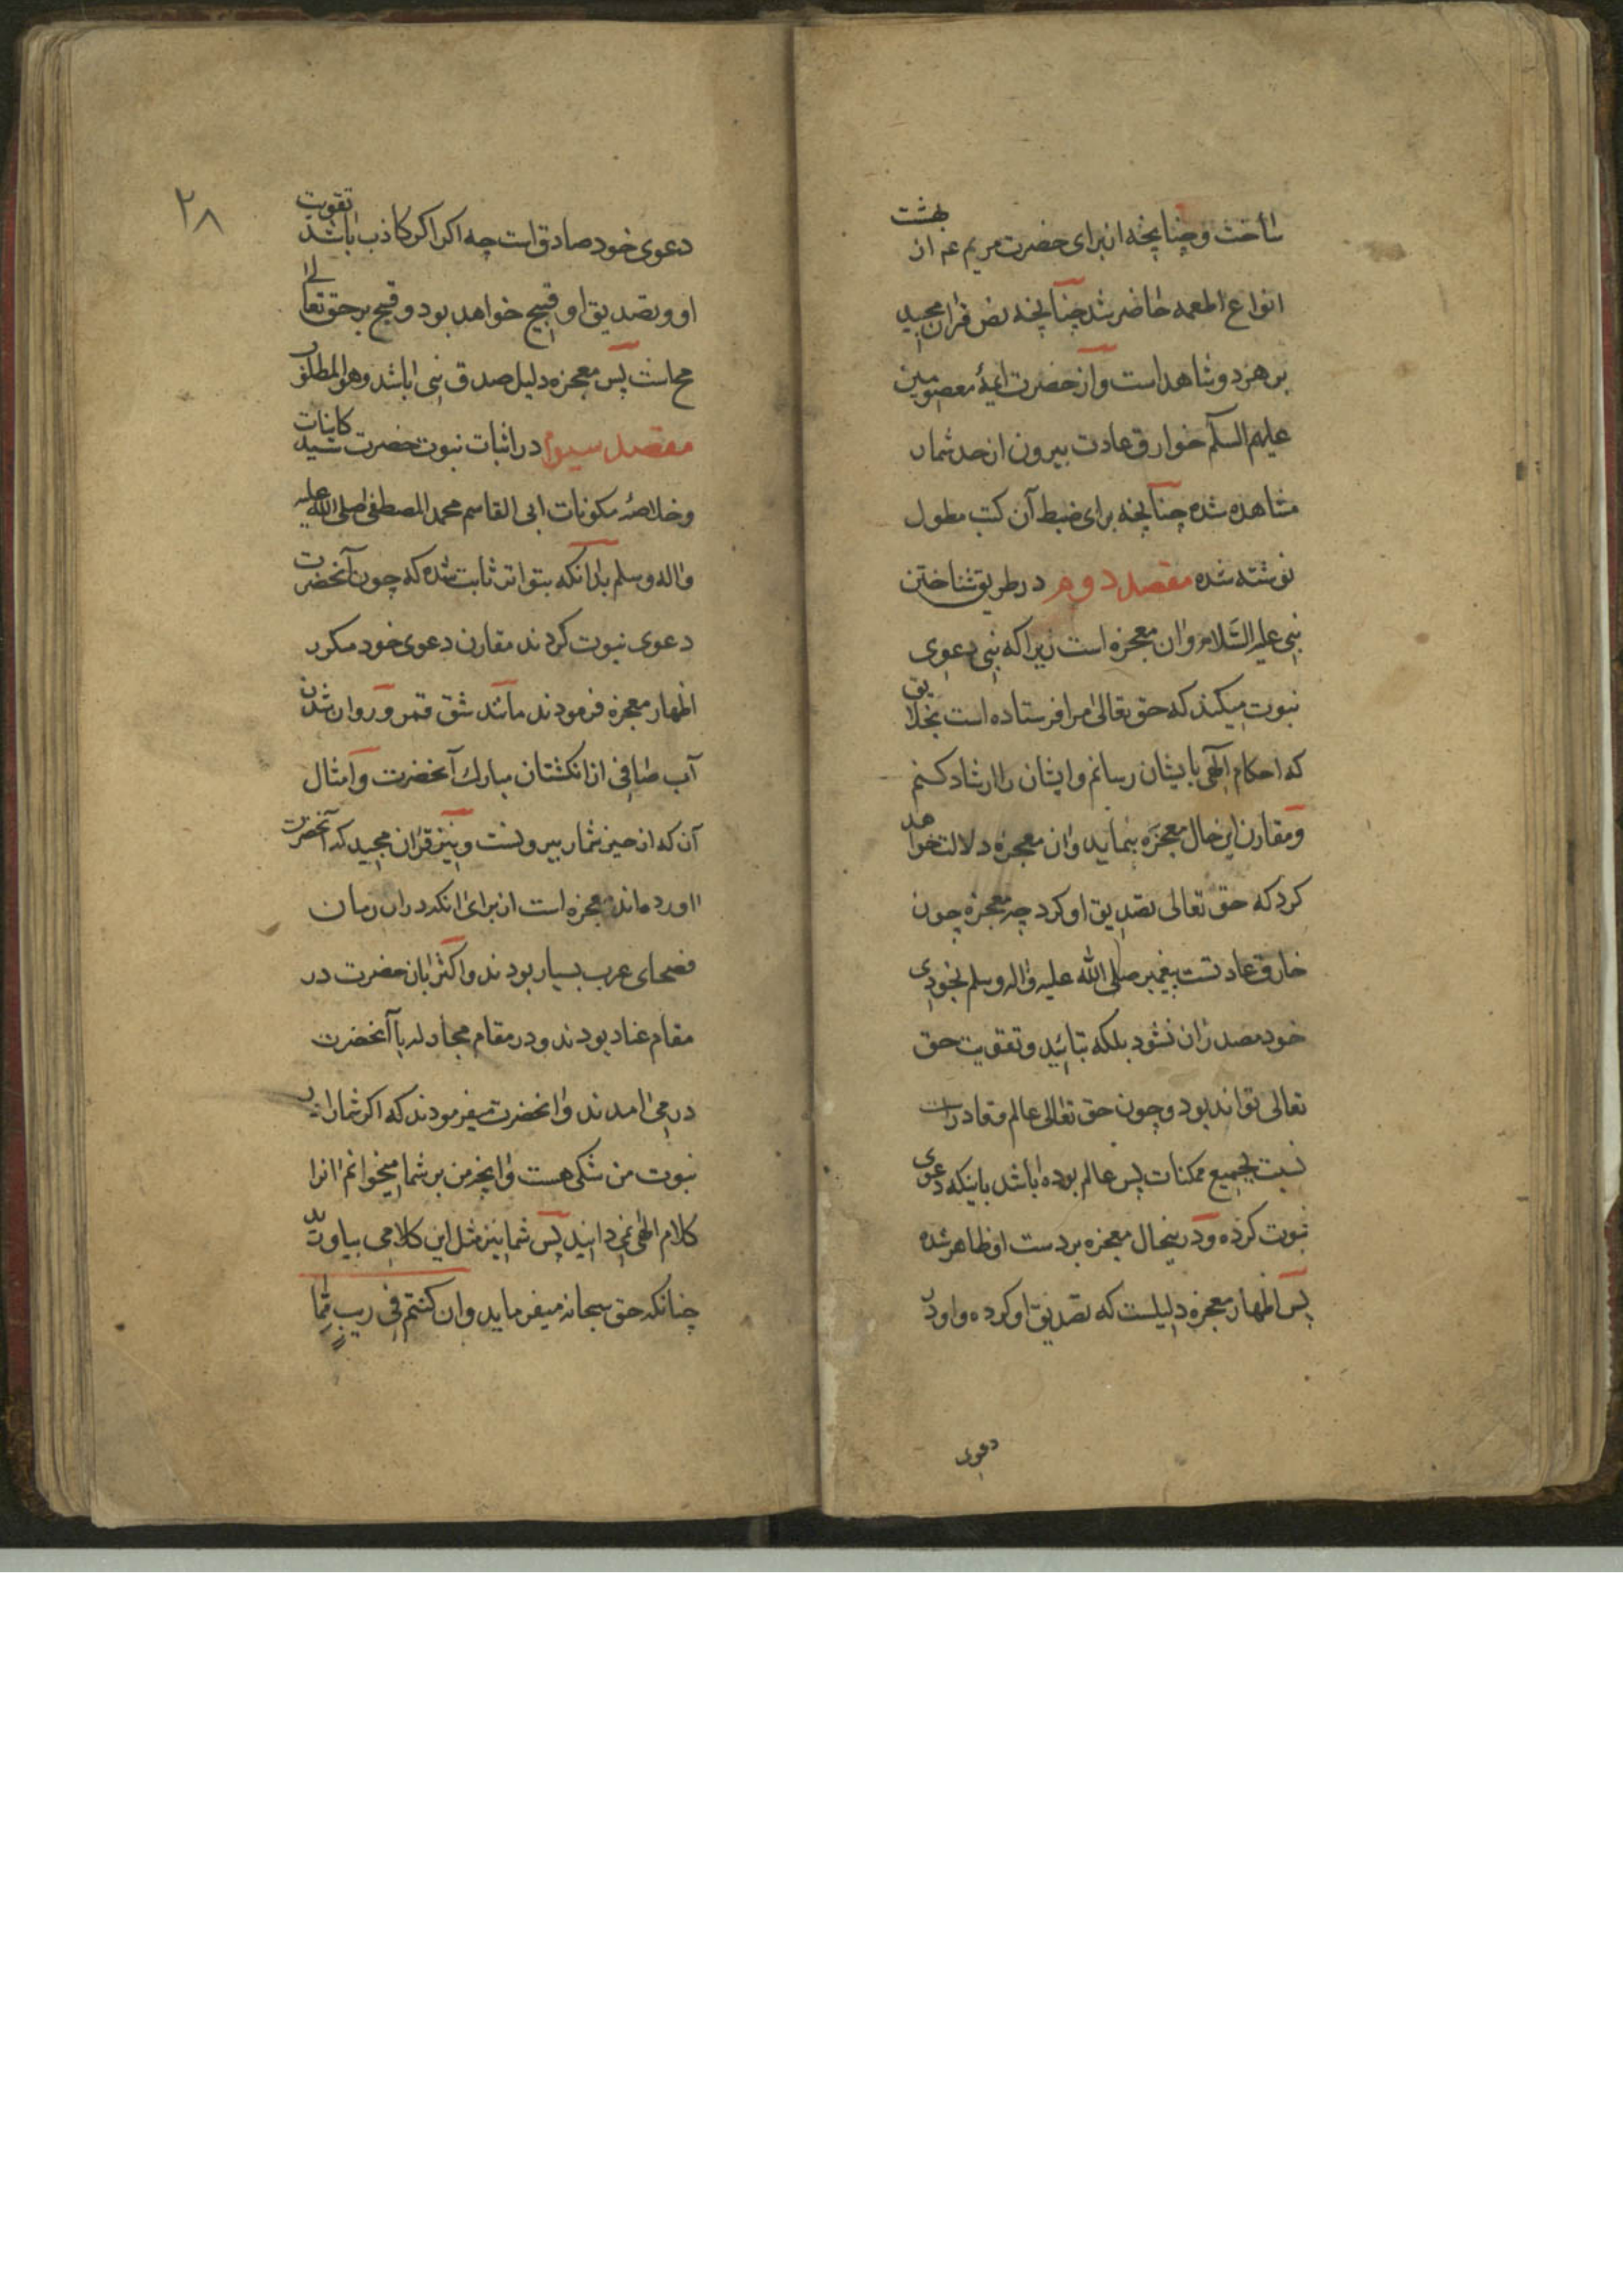 ساخت و چنانچه از برای حضرت مریم ع م از بهشت
انواع اطعمه حاضر شد چنانچه نص قران مجید
بر هر دو شاهد است و از حضرت ایمۀ معصومین
علیهم السلم خوارق عادت بیرون از حد شمار
مشاهده شده چنانچه برای ضبط آن کتب مطول
نوشته شده مقصد دوم در طریق شناختن
نبی علیه السّلام و ان معجزه است زیرا که نبی دعوی
نبوت میکند که حق تعالی مرا فرستاده است بخلایق
که احکام آلهی بایشان رسانم و ایشان را ارشاد کنم
و مقارن این حال معجزه بنماید و ان معجزه دلالت خواهد
کرد که حق تعالی تصدیق او کرد چه معجزه چون
خارق عادتست پیغمبر صلی الله علیه واله وسلم بخودی
خود مصدر ان نشود بلکه بتائید و تقویت حق
تعالی تواند بود و چون حق تعالی عالم و قادر است
نسبت بجمیع ممکنات پس عالم بوده باشد باینکه دعوی
نبوت کرده و درینحال معجزه بر دست او ظاهر شده
پس اظهار معجزه دلیلست که تصدیق او کرده و او در
دعوی
۲۸
دعوی خود صادق است چه اکر اکر کاذب باشد تقویت
او و تصدیق او قبیح خواهد بود و قبیح بر حق تعالی
محاست پس معجزه دلیل صدق نبی باشد وهو المطلوب
مقصد سیوم در اثبات نبوت حضرت سید کاینات
و خلاصۀ مکونات ابی القاسم محمد المصطفی صلی الله علیه
واله وسلم بدانکه بتواتر ثابت شده که چون آنحضرت
دعوی نبوت کردند مقارن دعوی خود مکرر
اظهار معجزه فرمودند مانند شق قمر و روان شدن
آب صافی از انکشتان مبارك آنحضرت و امثال
آن که از حیز شمار بیرونست و نیز قران مجید که آنحضرت
اورده اند معجزه است از برای انکه در ان زمان
فصحای عرب بسیار بودند و اکثر بان حضرت در
مقام عناد بودند و در مقام مجادله با آنحضرت
در می امدند و انحضرت میفرمودند که اکر شما را در
نبوت من شکی هست و انچه من بر شما میخوانم انرا
کلام الهی نمی دانید پس شما نیز مثل این کلامی بیاورید
چنانکه حق سبحانه میفرماید وان کنتم فی ریبٍ مّما